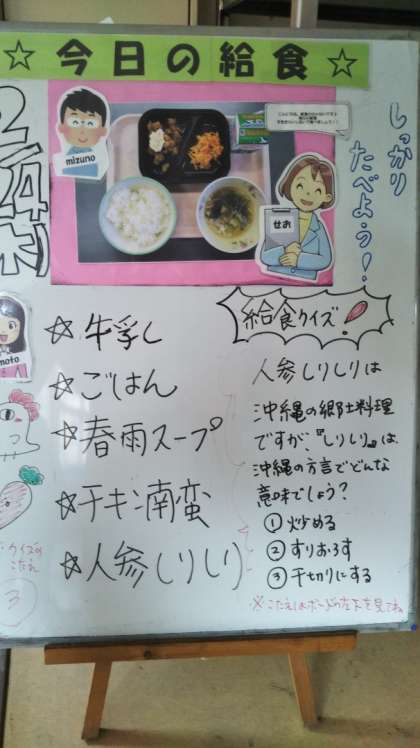 ☆ 今日の給食 ☆
2/24(木)
しっかり
たべよう!
mizuno
せお
moto
☆牛乳
☆ごはん
☆春雨スープ
☆チキン南蛮
☆人参しりしり
給食クイズ
人参しりしりは
沖縄の郷土料理
ですが、『しりしり』は、
沖縄の方言でどんな
意味でしょう?
① 炒める
② すりおろす
③ 千切りにする
※こたえはボードの左下を見てね
クイズの
こたえ
3